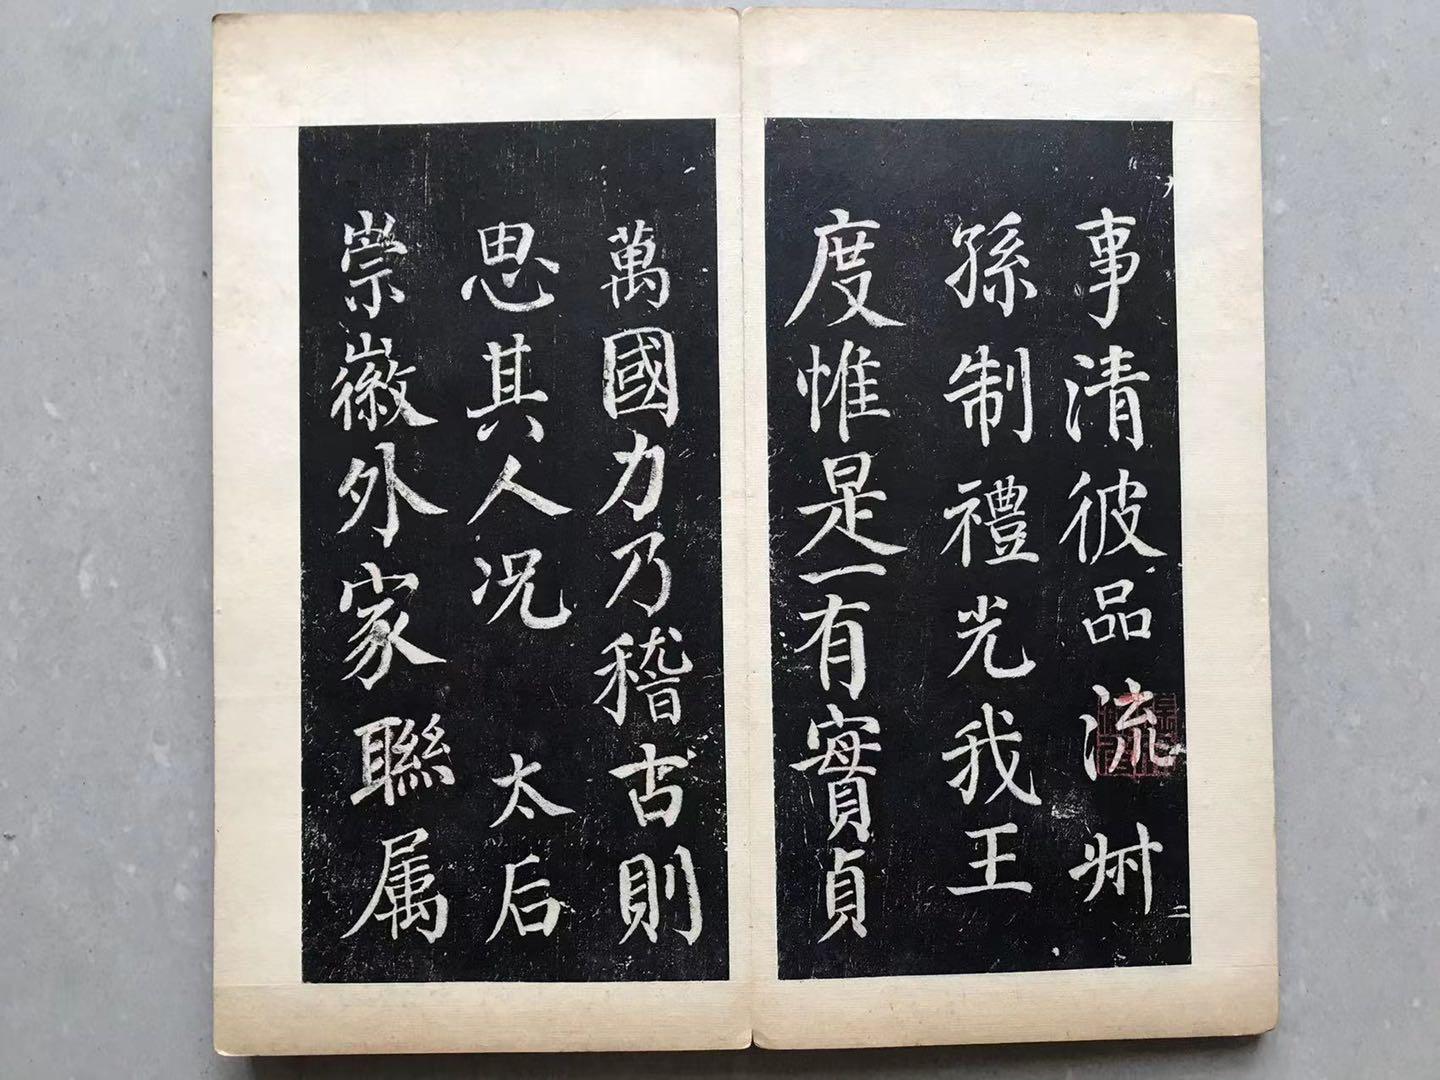 事清彼品流叔
孫制禮光我王
度惟是一有實貞
萬國力乃稽古則
思其人况太后
崇徽外家聯属